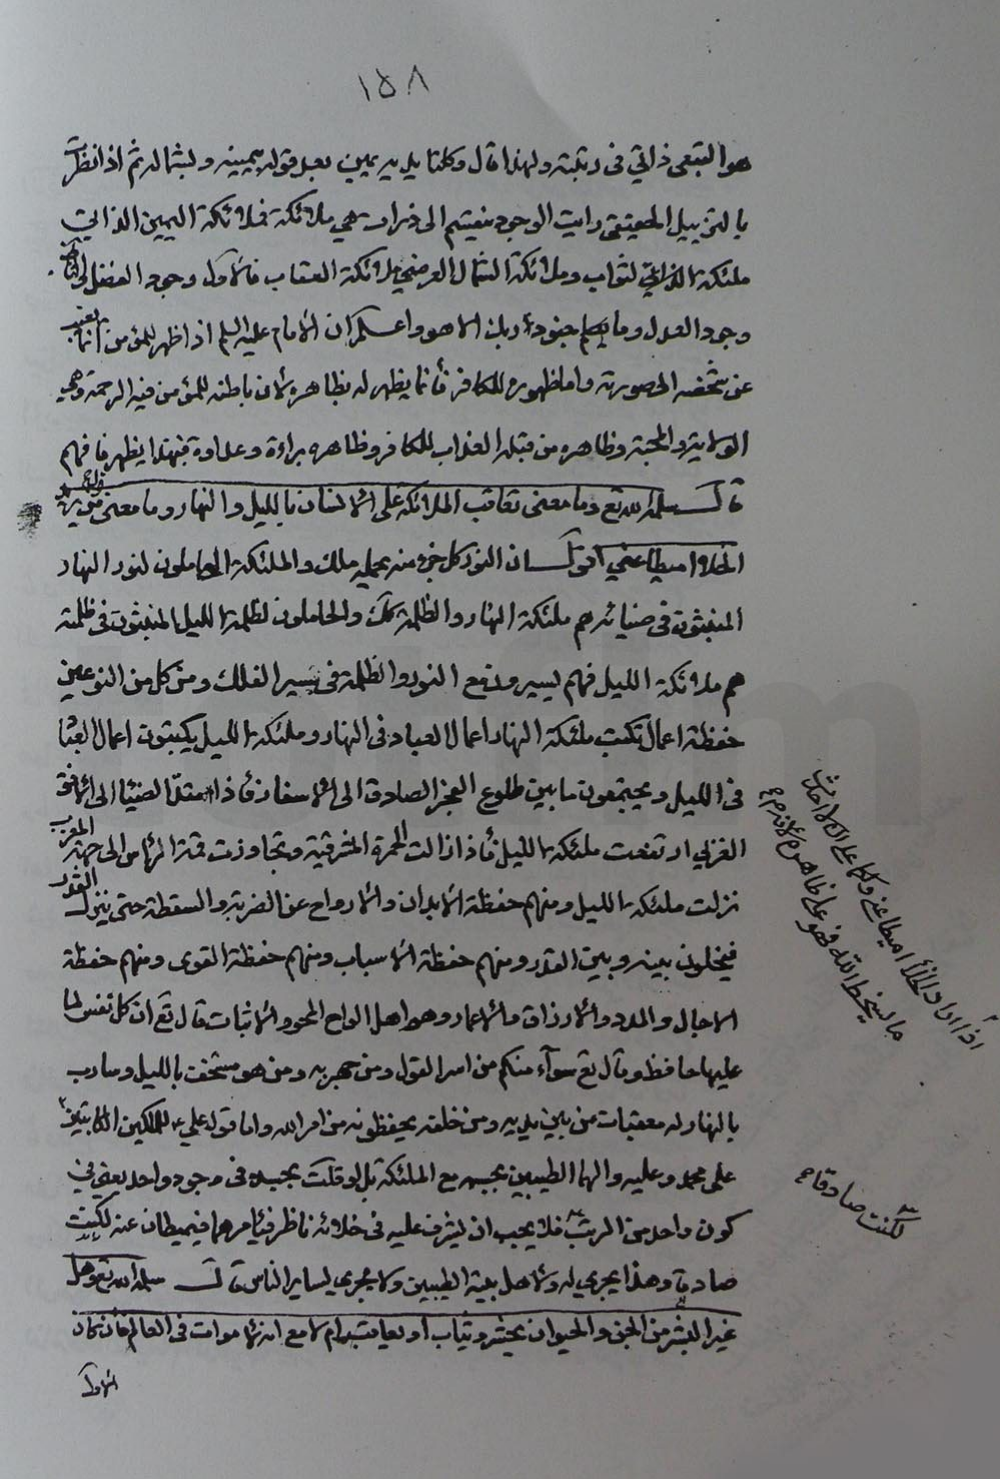 ١٥٨
هو التبعي ذاتي في رتبته ولهذا قال وكلتا يديه يمين بعد قوله بيمينه وبشماله ثم اذا نظرت
بالتزييل الحقيقي رايت الوجود منقسم الى ذرات هي ملائكة فملائكة اليمين الذاتي
ملئكة الثواب وملائكة الشمال العرضي ملائكة العقاب فالأول وجود الفضل والثاني
وجود العدل وما يعلم جنود ربك الا هو واعلم ان الامام عليه السلم اذا ظهر للمؤمن انما
عن شخصه الصورته واما ظهوره للكافر فأنما يظهر له بظاهره لان باطنه للمؤمن فيه الرحمة وهي
الولاية والمحبة وظاهره من قبله العذاب للكافر وظاهره براءة وعداوة فبهذا يظهر فافهم
قال سلمه الله تع وما معنى تعاقب الملائكة على الانسان بالليل والنهار وما معنى
الخلاء اميطا عني اقول ان النور كل جزء منه يحمله ملك والملئكة الحاملون لنور النهار
المنبثون في ضيائه هم ملئكة النهار والظلمة كك والحاملون لظلمة الليل المنبثون في ظلمته
هم ملائكة الليل فهم لسير ودفع النور والظلمة في سير الفلك ومن كل من النوعين
حفظة اعمال تكتب ملئكة النهار اعمال العباد في النهار وملئكة الليل يكتبون اعمال العباد
في الليل ويجتمعون ما بين طلوع الفجر الصادق الى الاسفار فأذا امتد الضياء الى الافق
الغربي ارتفعت ملئكة الليل فأذا زالت الحمرة المشرقية وتجاوزت قمة الرأس الى جهة المغرب
نزلت ملئكة الليل ومنهم حفظة الابدان والارواح عن الضربة والسقطة حتى ينزل القدر
فيخلون بينه وبين القدر ومنهم حفظة الاسباب ومنهم حفظة القوى ومنهم حفظة
الاجال والمدد والارزاق والاعمار وهو اهل الواح المحو والاثبات قال تع ان كل نفس لما
عليها حافظ وقال تع سوآء منكم من اسر القول ومن جهر به ومن هو مستخف بالليل وسارب
بالنهار له معقبات من بين يديه ومن خلفه يحفظونه من امر الله واما قول علي ع للملكين الكاتبين
على محمد وعليه والهما الطيبين بجسمه مع الملئكة بل لو قلت بجسده في وجود واحد يعني في
كون واحد من الرتب فلا يجب ان يشرف عليه في خلائه ناظر فيأمرهما فيميطان عنه لكنت
صادقا وهذا يجري له ولاهل بيته الطيبين ولا يجري لساير الناس قال سلمه الله تع وهل
غير البشر من الجن والحيوان يحشر ويثاب او يعاقب ام لا مع انه لا موات في العالم فان كان
الاول
اذا اراد الخلاء اميطا عني ولكما على ان لا احدث
ما يسخط الله فهو على ظاهره
لكنت صادقا